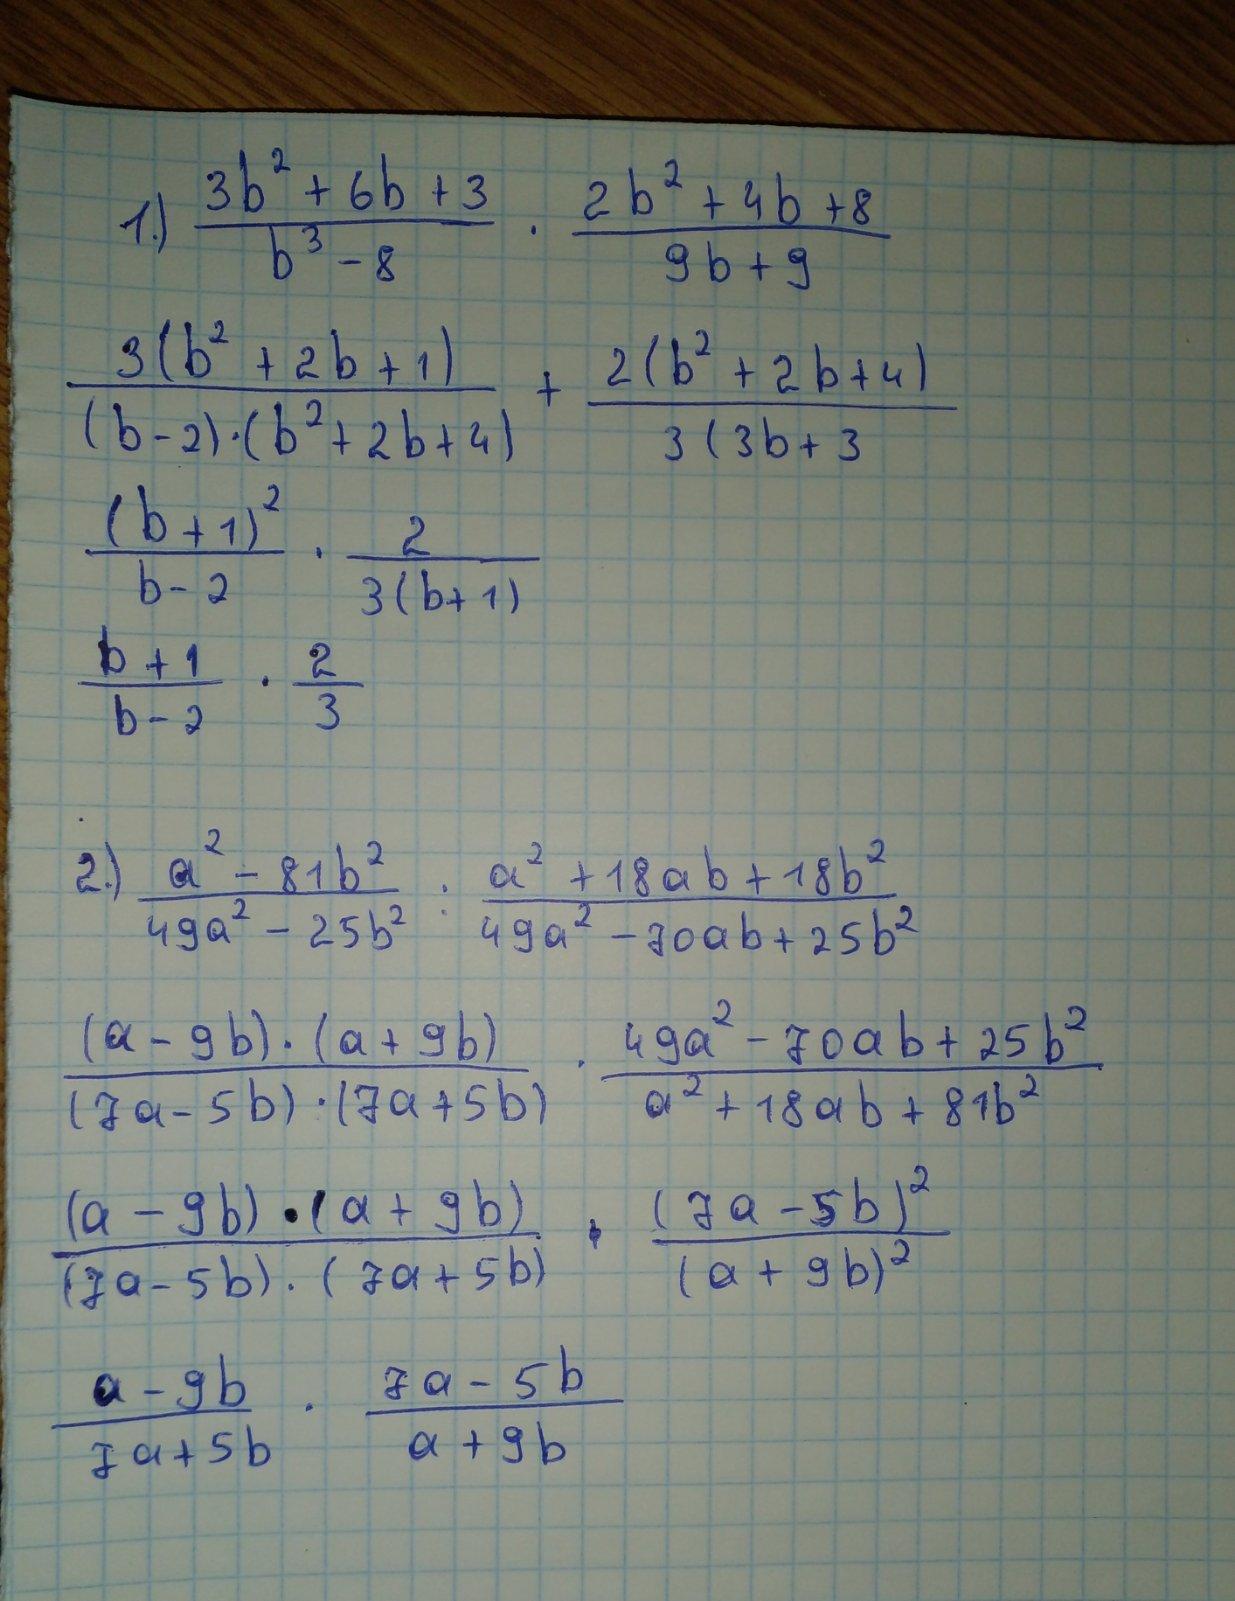 1.) (3b² + 6b + 3)/(b³ - 8) · (2b² + 4b + 8)/(9b + 9)
3(b² + 2b + 1)/((b - 2)·(b² + 2b + 4)) + 2(b² + 2b + 4)/(3(3b + 3
(b + 1)²/(b - 2) · 2/(3(b + 1))
(b + 1)/(b - 2) · 2/3
2.) (a² - 81b²)/(49a² - 25b²) : (a² + 18ab + 18b²)/(49a² - 70ab + 25b²)
(a - 9b)·(a + 9b)/((7a - 5b)·(7a + 5b)) · (49a² - 70ab + 25b²)/(a² + 18ab + 81b²)
(a - 9b)·(a + 9b)/((7a - 5b)·(7a + 5b)) · (7a - 5b)²/(a + 9b)²
(a - 9b)/(7a + 5b) · (7a - 5b)/(a + 9b)